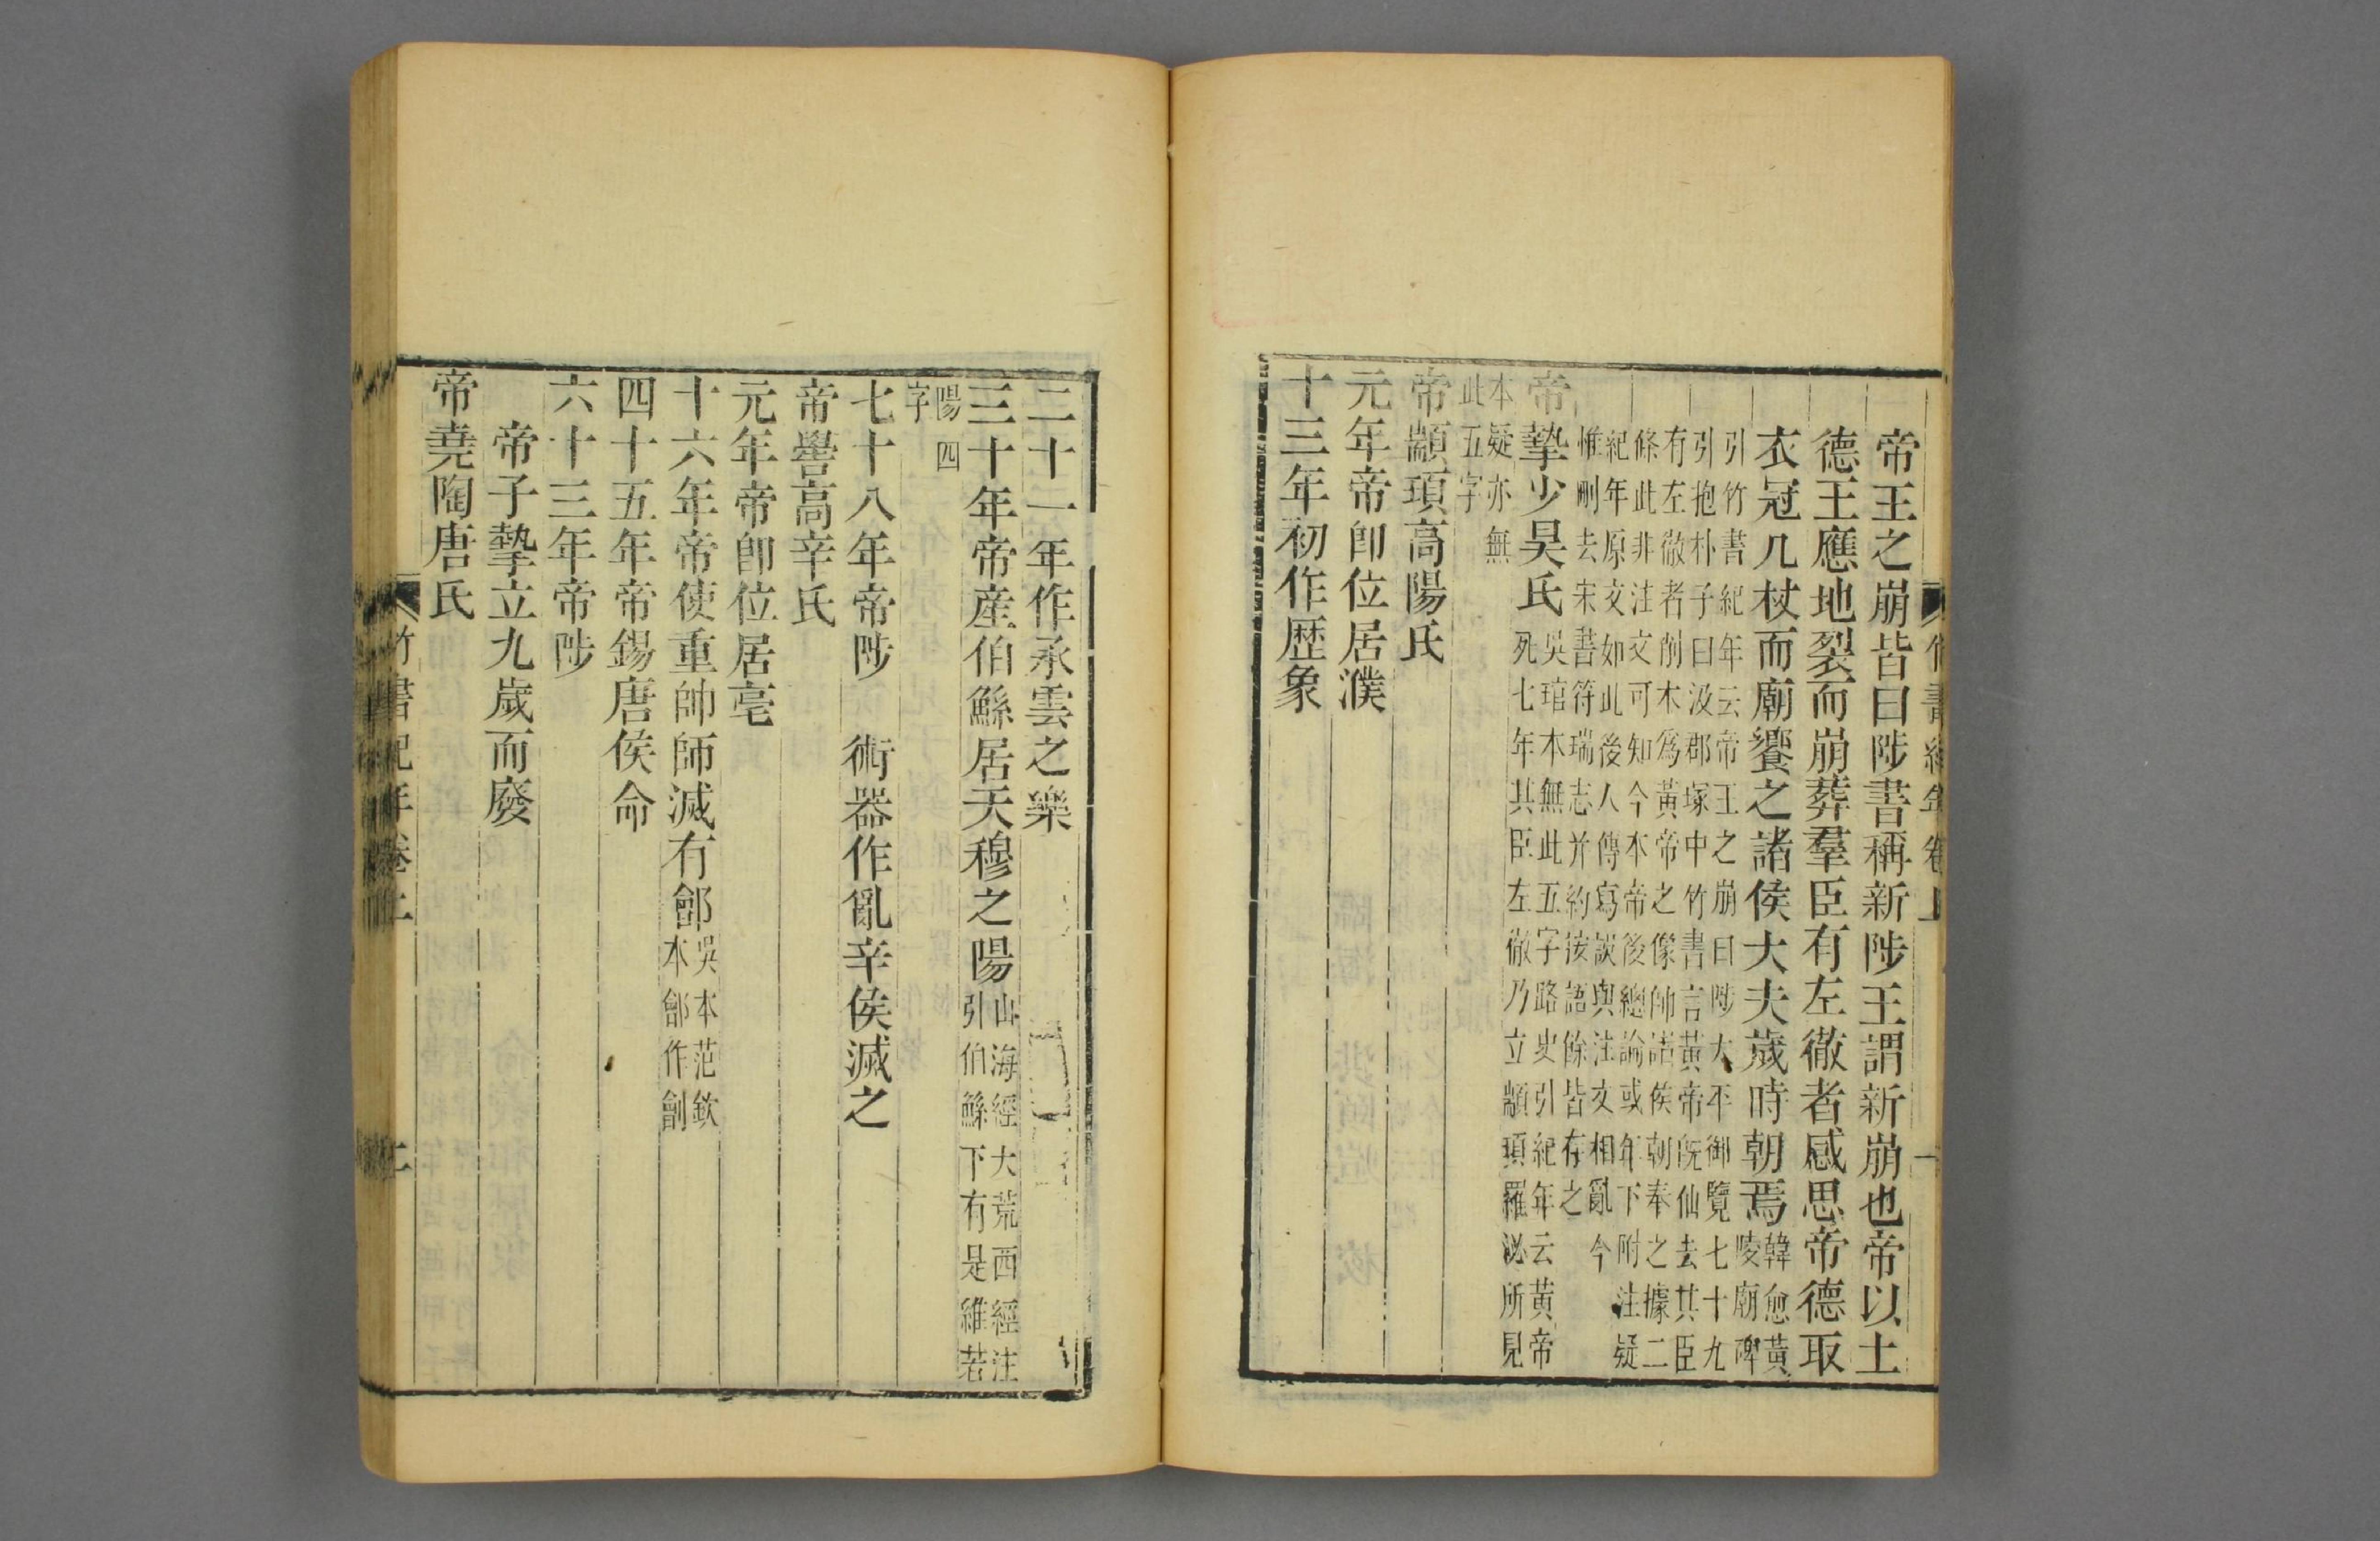 竹書紀年卷上 一
帝王之崩皆曰陟書稱新陟王謂新崩也帝以土
德王應地裂而崩葬羣臣有左徹者感思帝德取
衣冠几杖而廟饗之諸侯大夫歲時朝焉
韓愈黃
陵廟碑
引竹書紀年云帝王之崩曰陟大平御覽七十九
引抱朴子曰汲郡塚中竹書言黃帝旣仙去其臣
有左徹者削木爲黃帝之像帥諸侯朝奉之據二
條此非注文可知今本帝後總論或年下附注疑
紀年原文如此後人傳寫誤與注文相亂今
惟刪去宋書符瑞志并約按語餘皆存之
帝摯少昊氏
吳琯本無此五字路史引紀年云黃帝
死七年其臣左徹乃立顓頊羅泌所見
本疑亦無
此五字
帝顓頊高陽氏
元年帝卽位居濮
十三年初作歴象
二十一年作承雲之樂
三十年帝產伯鯀居天穆之陽
山海經大荒西經注
引伯鯀下有是維若
陽四
字
七十八年帝陟　術器作亂辛侯滅之
帝嚳高辛氏
元年帝卽位居亳
十六年帝使重帥師滅有鄶
吳本范欽
本鄶作劊
四十五年帝錫唐侯命
六十三年帝陟
帝子摯立九歲而廢
帝堯陶唐氏
竹書紀年卷上 二